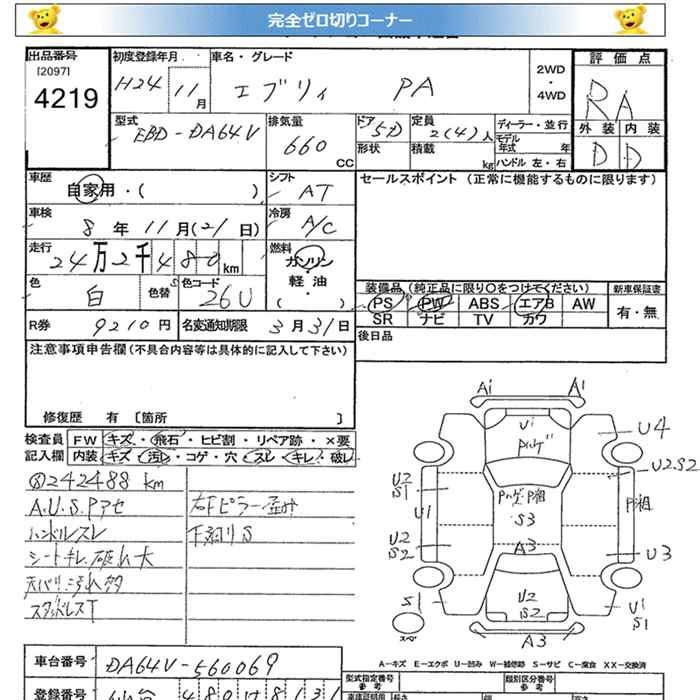 完全ゼロ切りコーナー
出品番号 初度登録年月 車名・グレード 評価点
[2097]
4219 H24 11月 エブリィ PA 2WD・4WD RA
外装 内装
D D
型式 EBD-DA64V 排気量 660 CC ドア 5D 形状 定員 2(4)人 積載 kg ディーラー・並行 モデル年式 年 ハンドル 左・右
車歴 自家用・( ) シフト AT セールスポイント (正常に機能するものに限ります)
車検 8年11月(21日) 冷房 A/C
走行 24万2千480km 燃料 ガソリン・軽油・( )
色 白 色替 色コード 26U
装備品 (純正品に限り○をつけてください) 新車保証書
PS PW ABS エアB AW 有・無
SR ナビ TV カワ
R券 9210円 名変通知期限 3月31日
後日品
注意事項申告欄(不具合内容等は具体的に記入して下さい)
修復歴 有 〔箇所 〕
検査員記入欄 FW キズ・飛石・ヒビ割・リペア跡・×要
内装 キズ・汚レ・コゲ・穴・スレ・キレ・破レ
242488 km
A.U.S.Pアセ 右Fピラー
ハンドルスレ 下廻りS
シートキレ 破れ大
天バリ汚れ多
スタッドレスT
A1 A1
U1
U4
U2 S1
U1
U2S2
P粗
S3
A3
U2 S2
U3
S1
U2 S2
U1 S1
スペア
A3
A-キズ E-エクボ U-凹み W-補修跡 S-サビ C-腐食 XX-交換済
車台番号 DA64V-560069
型式指定番号 参考 類別区分番号 参考
登録番号 仙台 480 13
車庫証明用 長さ 幅 高さ